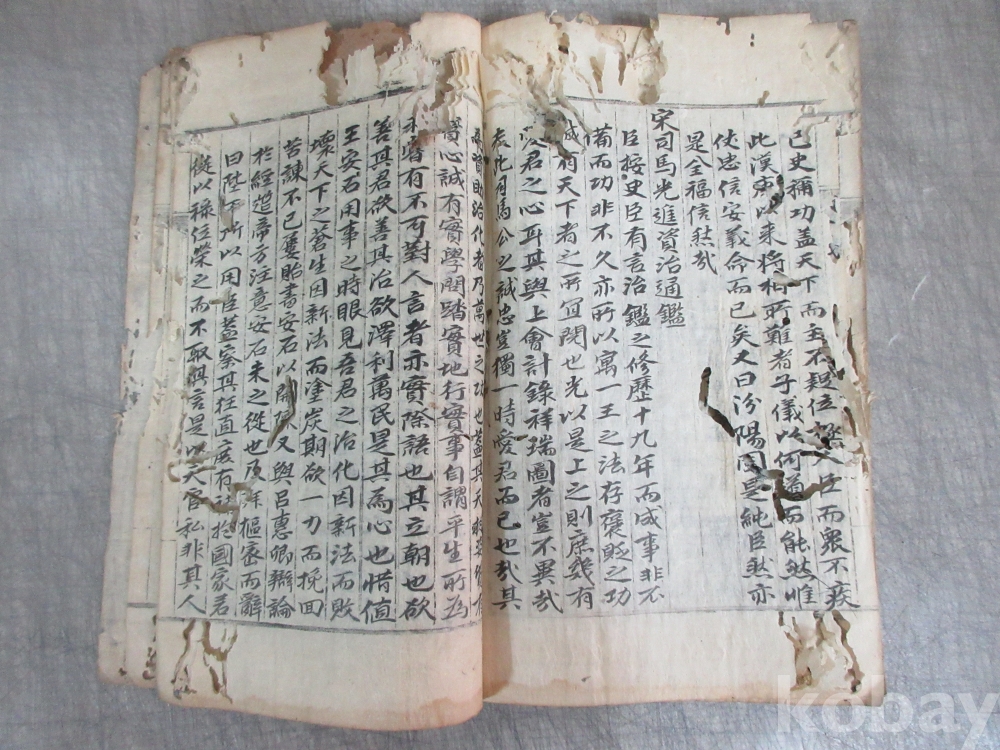 已史彌功盖天下而主不疑位 人臣而衆不疾
此漢 以来将相所難者子儀以何道而能然唯
仗忠信安義命而已矣大曰汾陽 是純臣然亦
是全福信愁哉
宋司馬光進資治通鑑
臣按史臣有言治鑑之修歷十九年而成事非不
備而功非不久亦所以寓一王之法存褒貶之功
誠有天下者之所宜閱也光以是上之則庶幾有
愛君之心耳其與上會計錄祥瑞圖者豈不異哉
於此有馬公之誠忠豈獨一時愛君而已也哉其
資 治化者乃萬世之功也盖其天
實心誠有實學闊踏實地行實事自謂平生所為
未嘗有不可對人言者亦實際語也其立朝也欲
善其君欲善其治欲澤利萬民是其為心也惜值
王安石用事之時眼見吾君之治化因新法而敗
壞天下之蒼生因新法而塗炭期欲一刀而挽回
苦諫不已隻貽書安石以開 又與呂惠卿辯論
於經筵帝方注意安石未之從也 樞密而辭
曰陛下所以用臣盖察其狂直庶有 國家若
徒以祿位榮之而不取其言是以天官私非其人
kobay